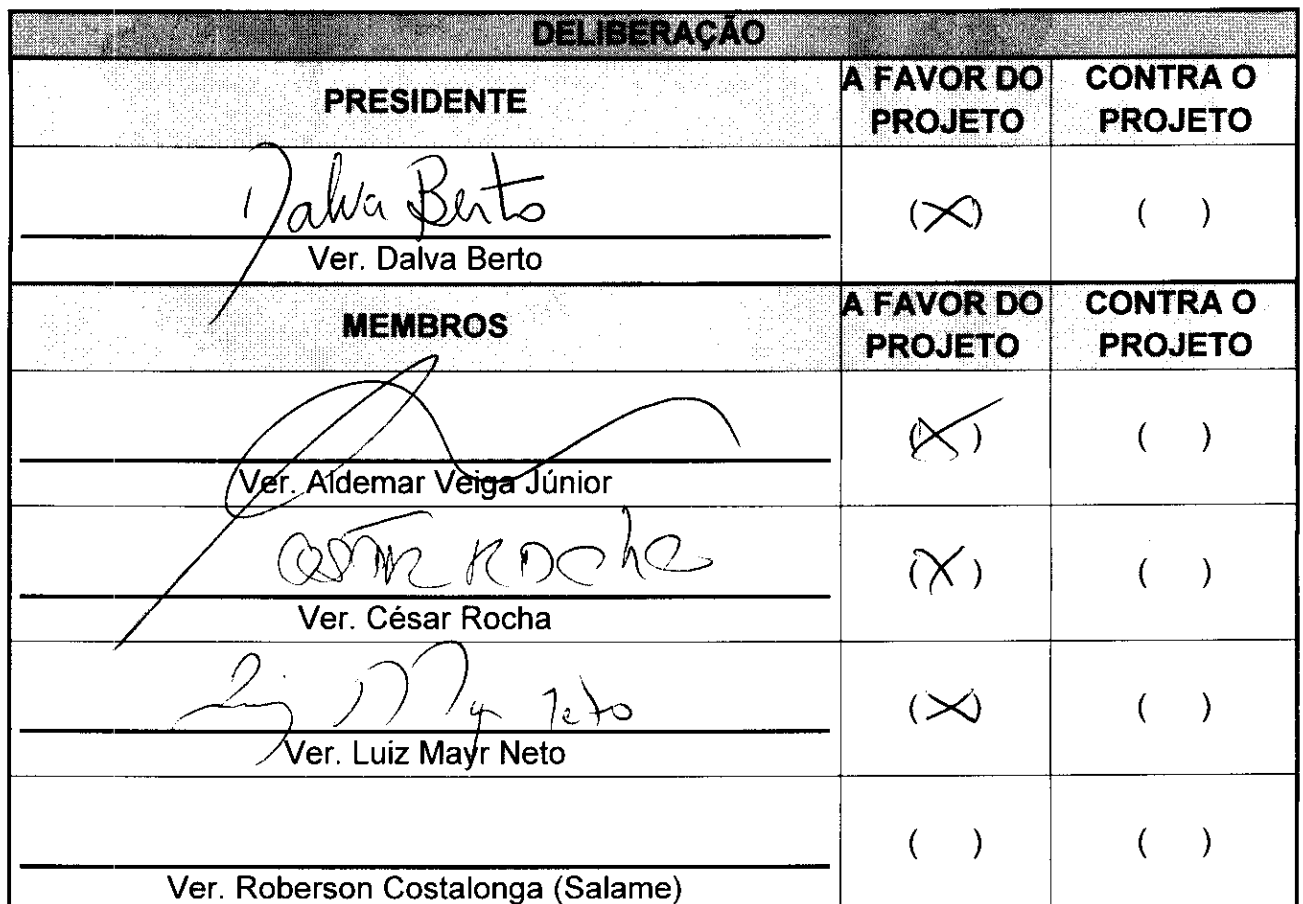 DELIBERAÇÃO
PRESIDENTE
A FAVOR DO PROJETO
CONTRA O PROJETO
Dalva Berto
(X)
( )
Ver. Dalva Berto
MEMBROS
A FAVOR DO PROJETO
CONTRA O PROJETO
(X)
( )
Ver. Aldemar Veiga Júnior
César Rocha
(X)
( )
Ver. César Rocha
Luiz Mayr Neto
(X)
( )
Ver. Luiz Mayr Neto
( )
( )
Ver. Roberson Costalonga (Salame)